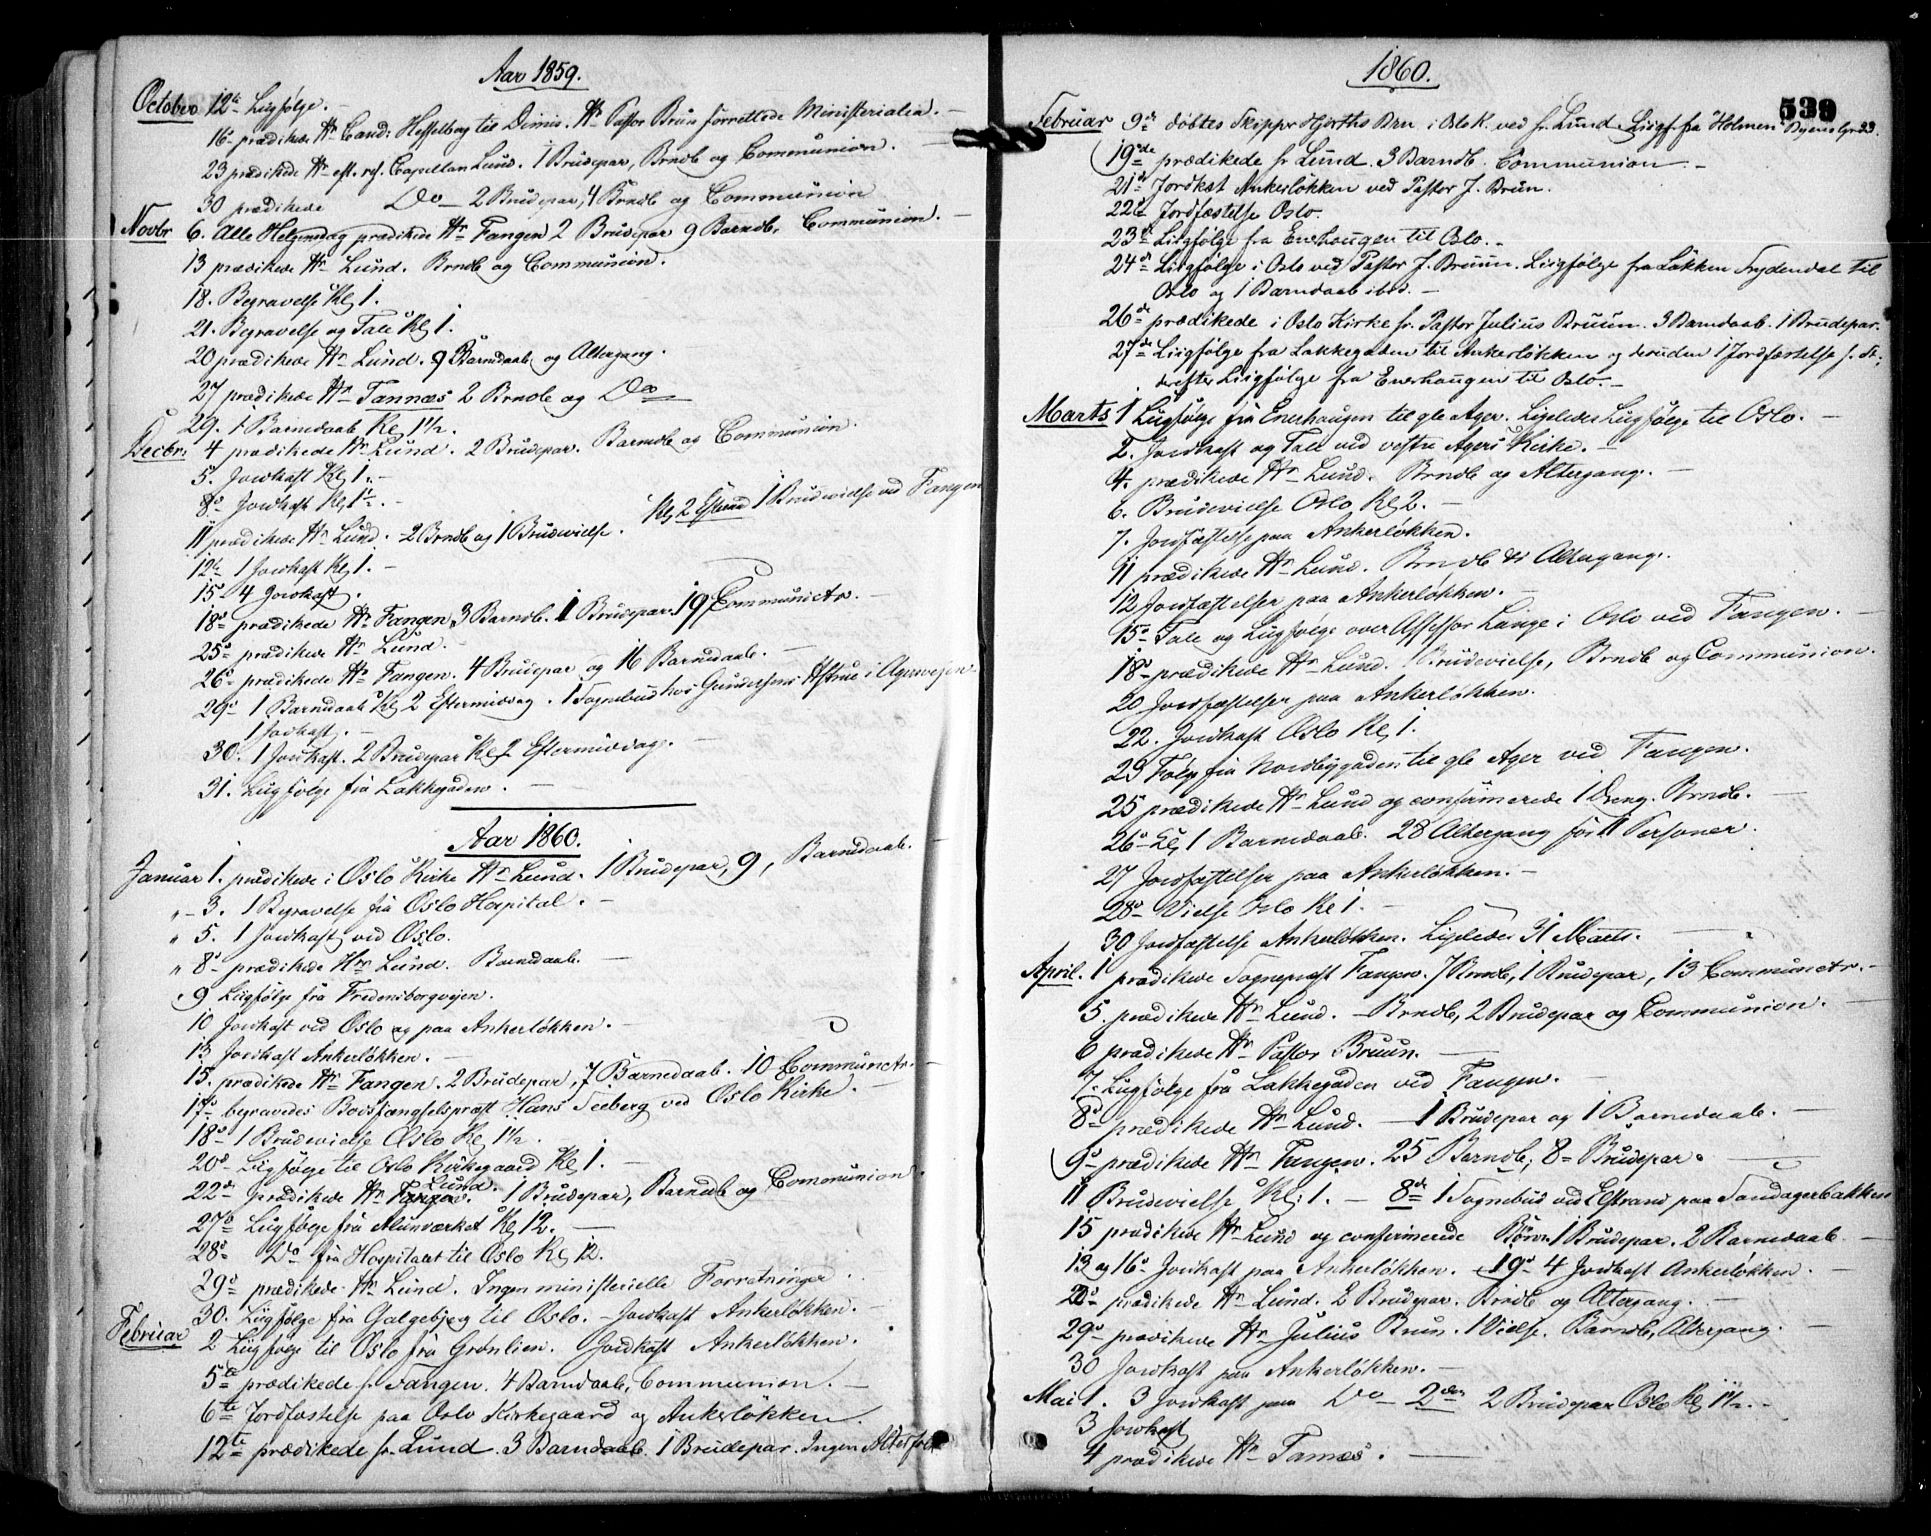 Aar 1859.
October 12te Liigfølge.
16de prædikede Hr Cand: Hesselberg til Dimis. Hr Pastor Brun forrettede Ministerialia.
23 prædikede Hr est. ref. Capellan Lund. 1 Brudepar, Brndb og Communion.
30 prædikede Do 2 Brudepar, 4 Brndb og Communion
Novbr 6. Alle Helgensdag prædikede Hr Fangen 2 Brudepar 9 Barndb. Communion.
13 prædikede Hr Lund. Brndb og Communion.
18. Begravelse Kl 1.
21. Begravelse og Tale Kl 1.
20 prædikede Hr Lund. 9 Barndaab og Altergang.
27 prædikede Hr Tannæs 2 Brndb og Do
29. 1 Barndaab Kl 1½.
Decbr: 4 prædikede Hr Lund. 2 Brudepar. Barndb og Communion.
5. Jordkast Kl 1.
8de Jordkast Kl 1½.
11 prædikede Hr Lund. 2 Brndb og 1 Brudevielse. Kl 2 Efterm 1 Brudevielse ved Fangen
12te 1 Jordkast Kl 1.
15de 4 Jordkast.
18de prædikede Hr Fangen 3 Barndb. 1 Brudepar. 19 Communictr.
25de prædikede Hr Lund.
26de prædikede Hr Fangen. 4 Brudepar og 16 Barndaab.
29de 1 Barndaab Kl 2 Eftermiddag. 1 Sognebud hos Gundersens Hstrue i Agersvejen
1 Jordkast.
30. 1 Jordkast. 2 Brudepar Kl 2 Eftermiddag.
31. Liigfølge fra Lakkegaden.
Aar 1860.
Januar 1. prædikede i Oslo Kirke Hr Lund. 1 Brudepar, 9, Barndaab.
" 3. 1 Begravelse fra Oslo Hospital.
" 5. 1 Jordkast ved Oslo.
" 8de prædikede Hr Lund. Barndaab.
9 Liigfølge fra Fredensborgvejen.
10 Jordkast ved Oslo og paa Ankerløkken.
13 Jordkast Ankerløkken.
15. prædikede Hr Fangen. 2 Brudepar, 7 Barnedaab. 10 Communctr.
17de begravedes Bodsfængselspræst Hans Seeberg ved Oslo Kirke.
18de 1 Brudevielse Oslo Kl 1½.
20de Liigfølge til Oslo Kirkegaard Kl 1.
22de prædikede Hr Fangen Lund. 1 Brudepar, Barndb og Communion.
27de Liigfølge fra Alunværket Kl 12.
28de Do fra Hospitalet til Oslo Kl 12.
29de prædikede Hr Lund. Ingen ministerielle Forretninger.
30. Liigfølge fra Galgebjerg til Oslo. Jordkast Ankerløkken.
Februar 2 Liigfølge til Oslo fra Grønlien. Jordkast Ankerløkken.
5te prædikede hr Fangen. 4 Barndaab, Communion.
6te Jordfæstelse paa Oslo Kirkegaard og Ankerløkken.
12te prædikede hr Lund. 3 Barndaab. 1 Brudepar. Ingen Altersfolk
1860.
539
Februar 9de døbtes Skipper Hjorths Brn i Oslo K. ved hr Lund. Liigf. fra "Holmen" Byens Grd.
19de prædikede hr Lund. 3 Barndb. Communion
21de Jordkst Ankerløkken ved Pastor J. Brun.
22de Jordfæstelse Oslo.
23de Liigfølge fra Enerhaugen til Oslo.
24de Liigfølge i Oslo ved Pastor J. Bruun. Liigfølge fra Løkken Frydendal til
Oslo og 1 Barndaab ibid.
26de prædikede i Oslo Kirke hr. Pastor Julius Bruun. 3 Barndaab. 1 Brudepar.
27de Liigfølge fra Lakkegaden til Ankerløkken og desuden 1 Jordfæstelse s. St.
derefter Liigfølge fra Enerhaugen til Oslo.
Marts 1 Liigfølge fra Enerhaugen til gle Ager. Ligeledes Liigfølge til Oslo.
2. Jordkast og Tale ved vestre Agers Kirke.
4. prædikede Hr Lund. Brndb og Altergang.
6. Brudevielse Oslo Kl 2.
7. Jordfæstelse paa Ankerløkken.
11 prædikede Hr Lund. Brndb & Altergang.
12 Jordfæstelser paa Ankerløkken.
15de Tale og Liigfølge over Assessor Lange i Oslo ved Fangen.
18de prædikede Hr Lund. 1 Brudevielse, Brndb og Communion.
20 Jordfæstelser paa Ankerløkken.
22. Jordkast Oslo Kl 1.
23 Følge fra Nordbygaden til gle Ager ved Fangen.
25 prædikede Hr Lund og confirmerede 1 Dreng. Brndb.
26de Kl, 1 Barndaab. 28 Altergang for 11 Personer.
27 Jordfæstelser paa Ankerløkken.
28de Vielse Oslo Kl 1.
30 Jordfæstelse Ankerløkken. Ligeledes 31 Marts.
April. 1 prædikede Sogneprest Fangen. 7 Brndb, 1 Brudepar, 13 Communctr.
5. prædikede Hr Lund. Brndb, 2 Brudepar og Communion.
6 prædikede Hr Pastor Bruun.
7. Liigfølge fra Lakkegaden ved Fangen.
8de prædikede Hr Lund. 1 Brudepar og 1 Barnedaab.
9de prædikede Hr Fangen. 25 Barndb, 8 Brudepar.
11 Brudevielse Kl: 1. 8de 1 Sognebud ved Elstrand paa Sandagerbakken
15 prædikede Hr Lund og confirmerede Børn 1 Brudepar. 2 Barnedaab
13 og 16de Jordkast paa Ankerløkken. 19de 4 Jordkast Ankerløkken.
22de prædikede Hr Lund. 2 Brudepar. Brndb og Altergang.
29de prædikede Hr Julius Brun. 1 Vielse. Barndb, Altergang.
30 Jordkast paa Ankerløkken.
Mai 1. 3 Jordkast paa Do 2den 2 Brudepar Oslo Kl 1½.
3 Jordkast
4 prædikede Hr Tannæs.